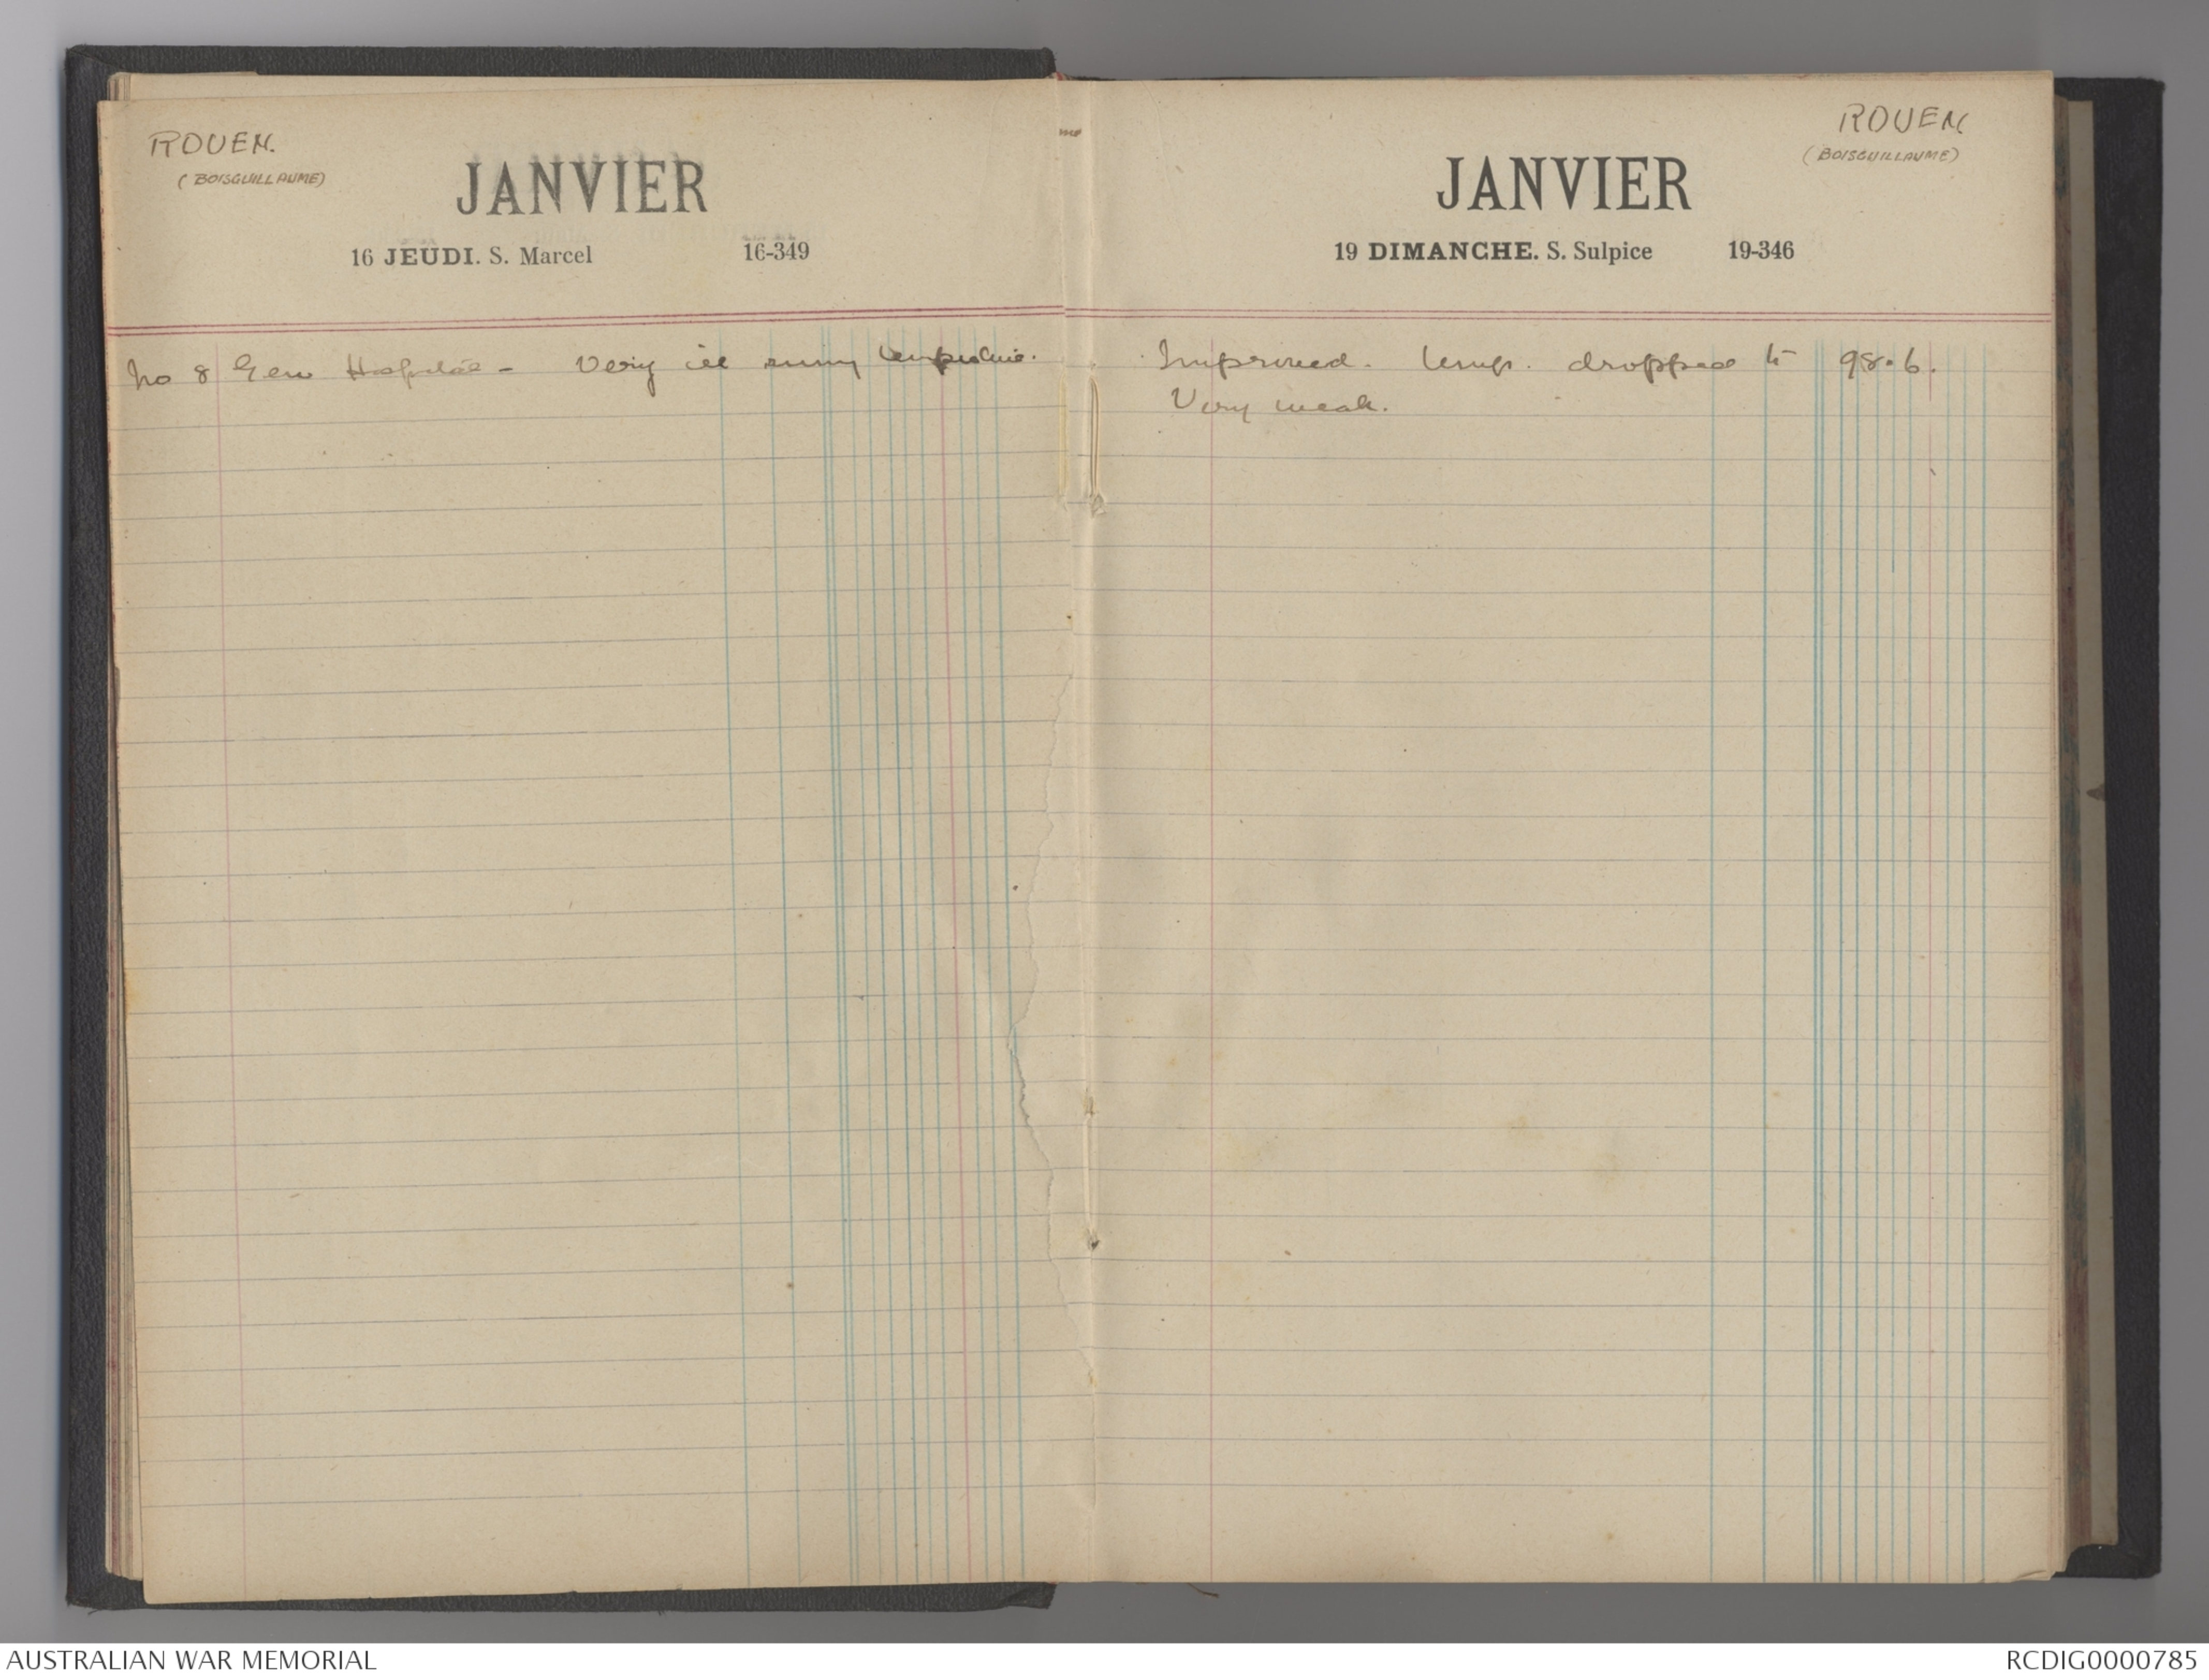 ROUEN.
(BOISGUILLAUME)
JANVIER
16 JEUDI. S. Marcel 16-349
No 8 Gen Hospital - Very ill runny temperature.
ROUEN
(BOISGUILLAUME)
JANVIER
19 DIMANCHE. S. Sulpice 19-346
Improved. Temp. dropped to 98.6.
Very weak.
AUSTRALIAN WAR MEMORIAL
RCDIG0000785